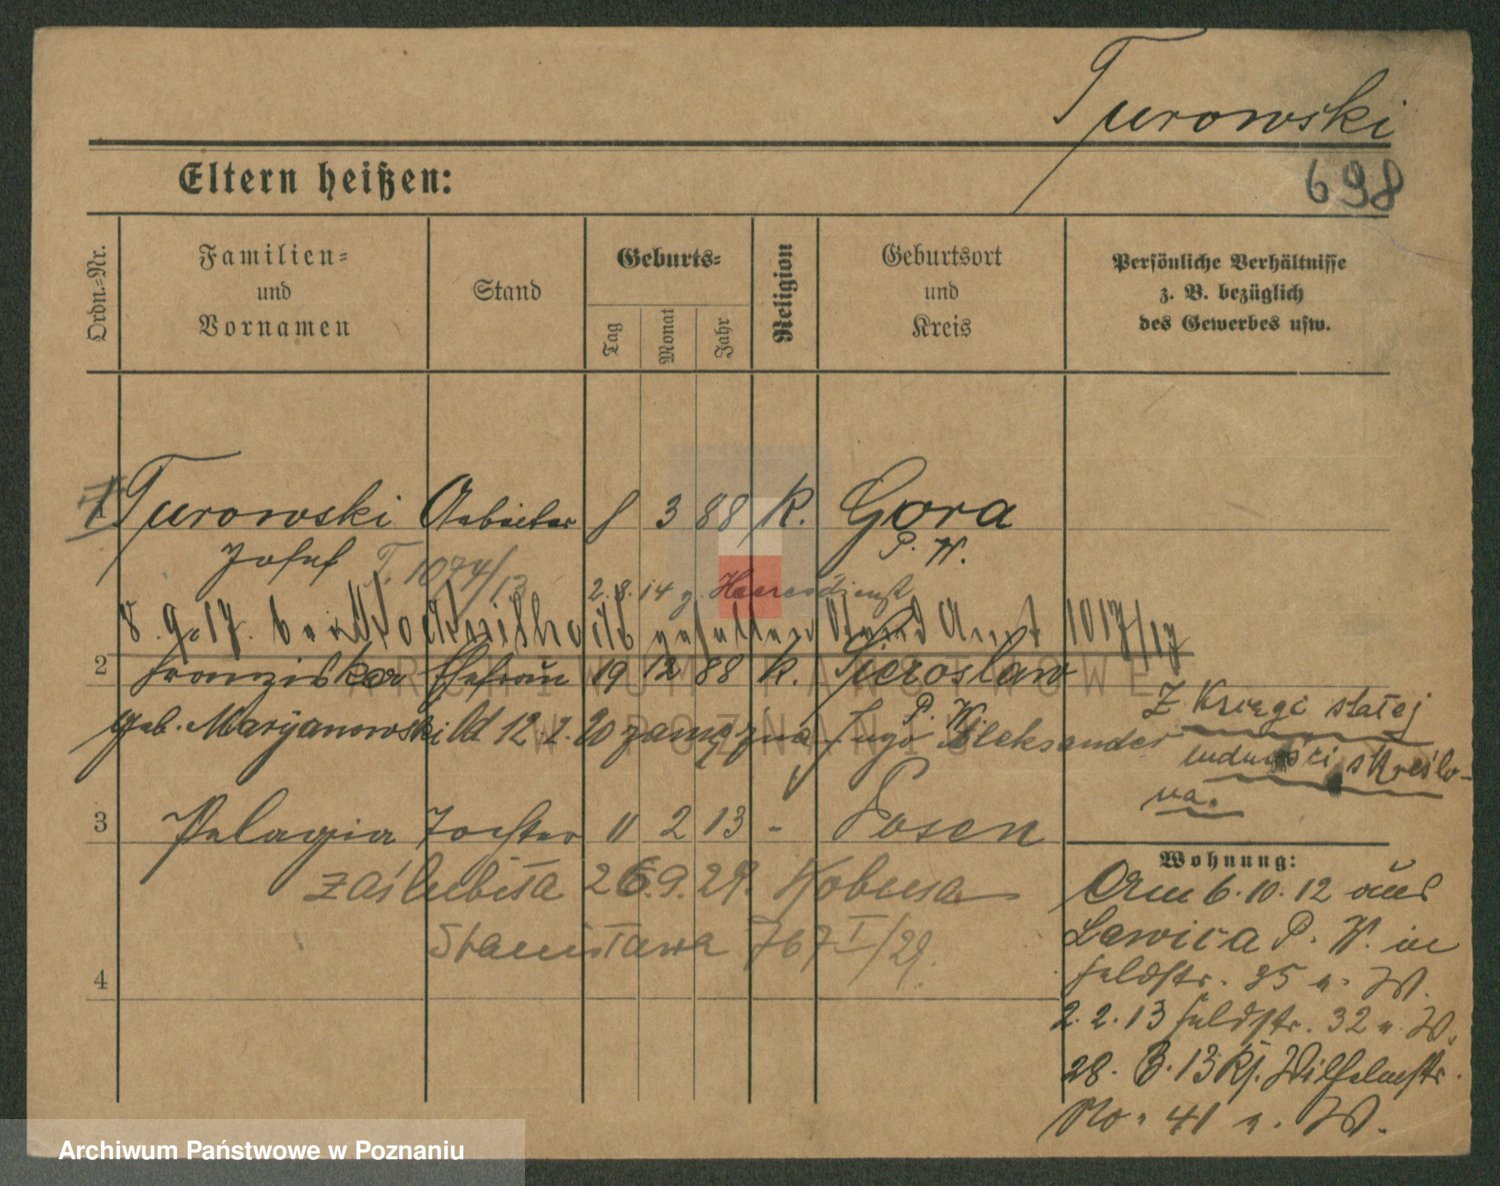 Turowski
698
Eltern heißen:
Ordn.-Nr.
Familien-
und
Vornamen
Stand
Geburts-
Tag
Monat
Jahr
Religion
Geburtsort
und
Kreis
Persönliche Verhältnisse
z. B. bezüglich
des Gewerbes usw.
1 Turowski Arbeiter 8 3 88 K. Gora
Josef T. 1074/13 P. W.
2.8.14 z. Heeresdienst
8. 9. 17. gefallen Stand Amt 1017/17
2 Franziska Ehefrau 19 12 88 K. Sieroslaw
P. W.
geb. Maryanowski Od 12.2.20 zamężna Aleksander
Z Księgi stałej
ludności skreślo-
na.
3 Pelagia Tochter 11 2 13 - Posen
zaślubiła 26.9.29. Kobusa
Stanisława 767 I/29.
4
Wohnung:
Am 6.10.12 aus
Lawica P. W. in
Feldstr. 35 a. W.
2.2.13 Feldstr. 32 a. W.
28. 3. 13 Kr. Wilhelmstr.
No. 41 a. W.
ARCHIWUM PAŃSTWOWE
W POZNANIU
Archiwum Państwowe w Poznaniu